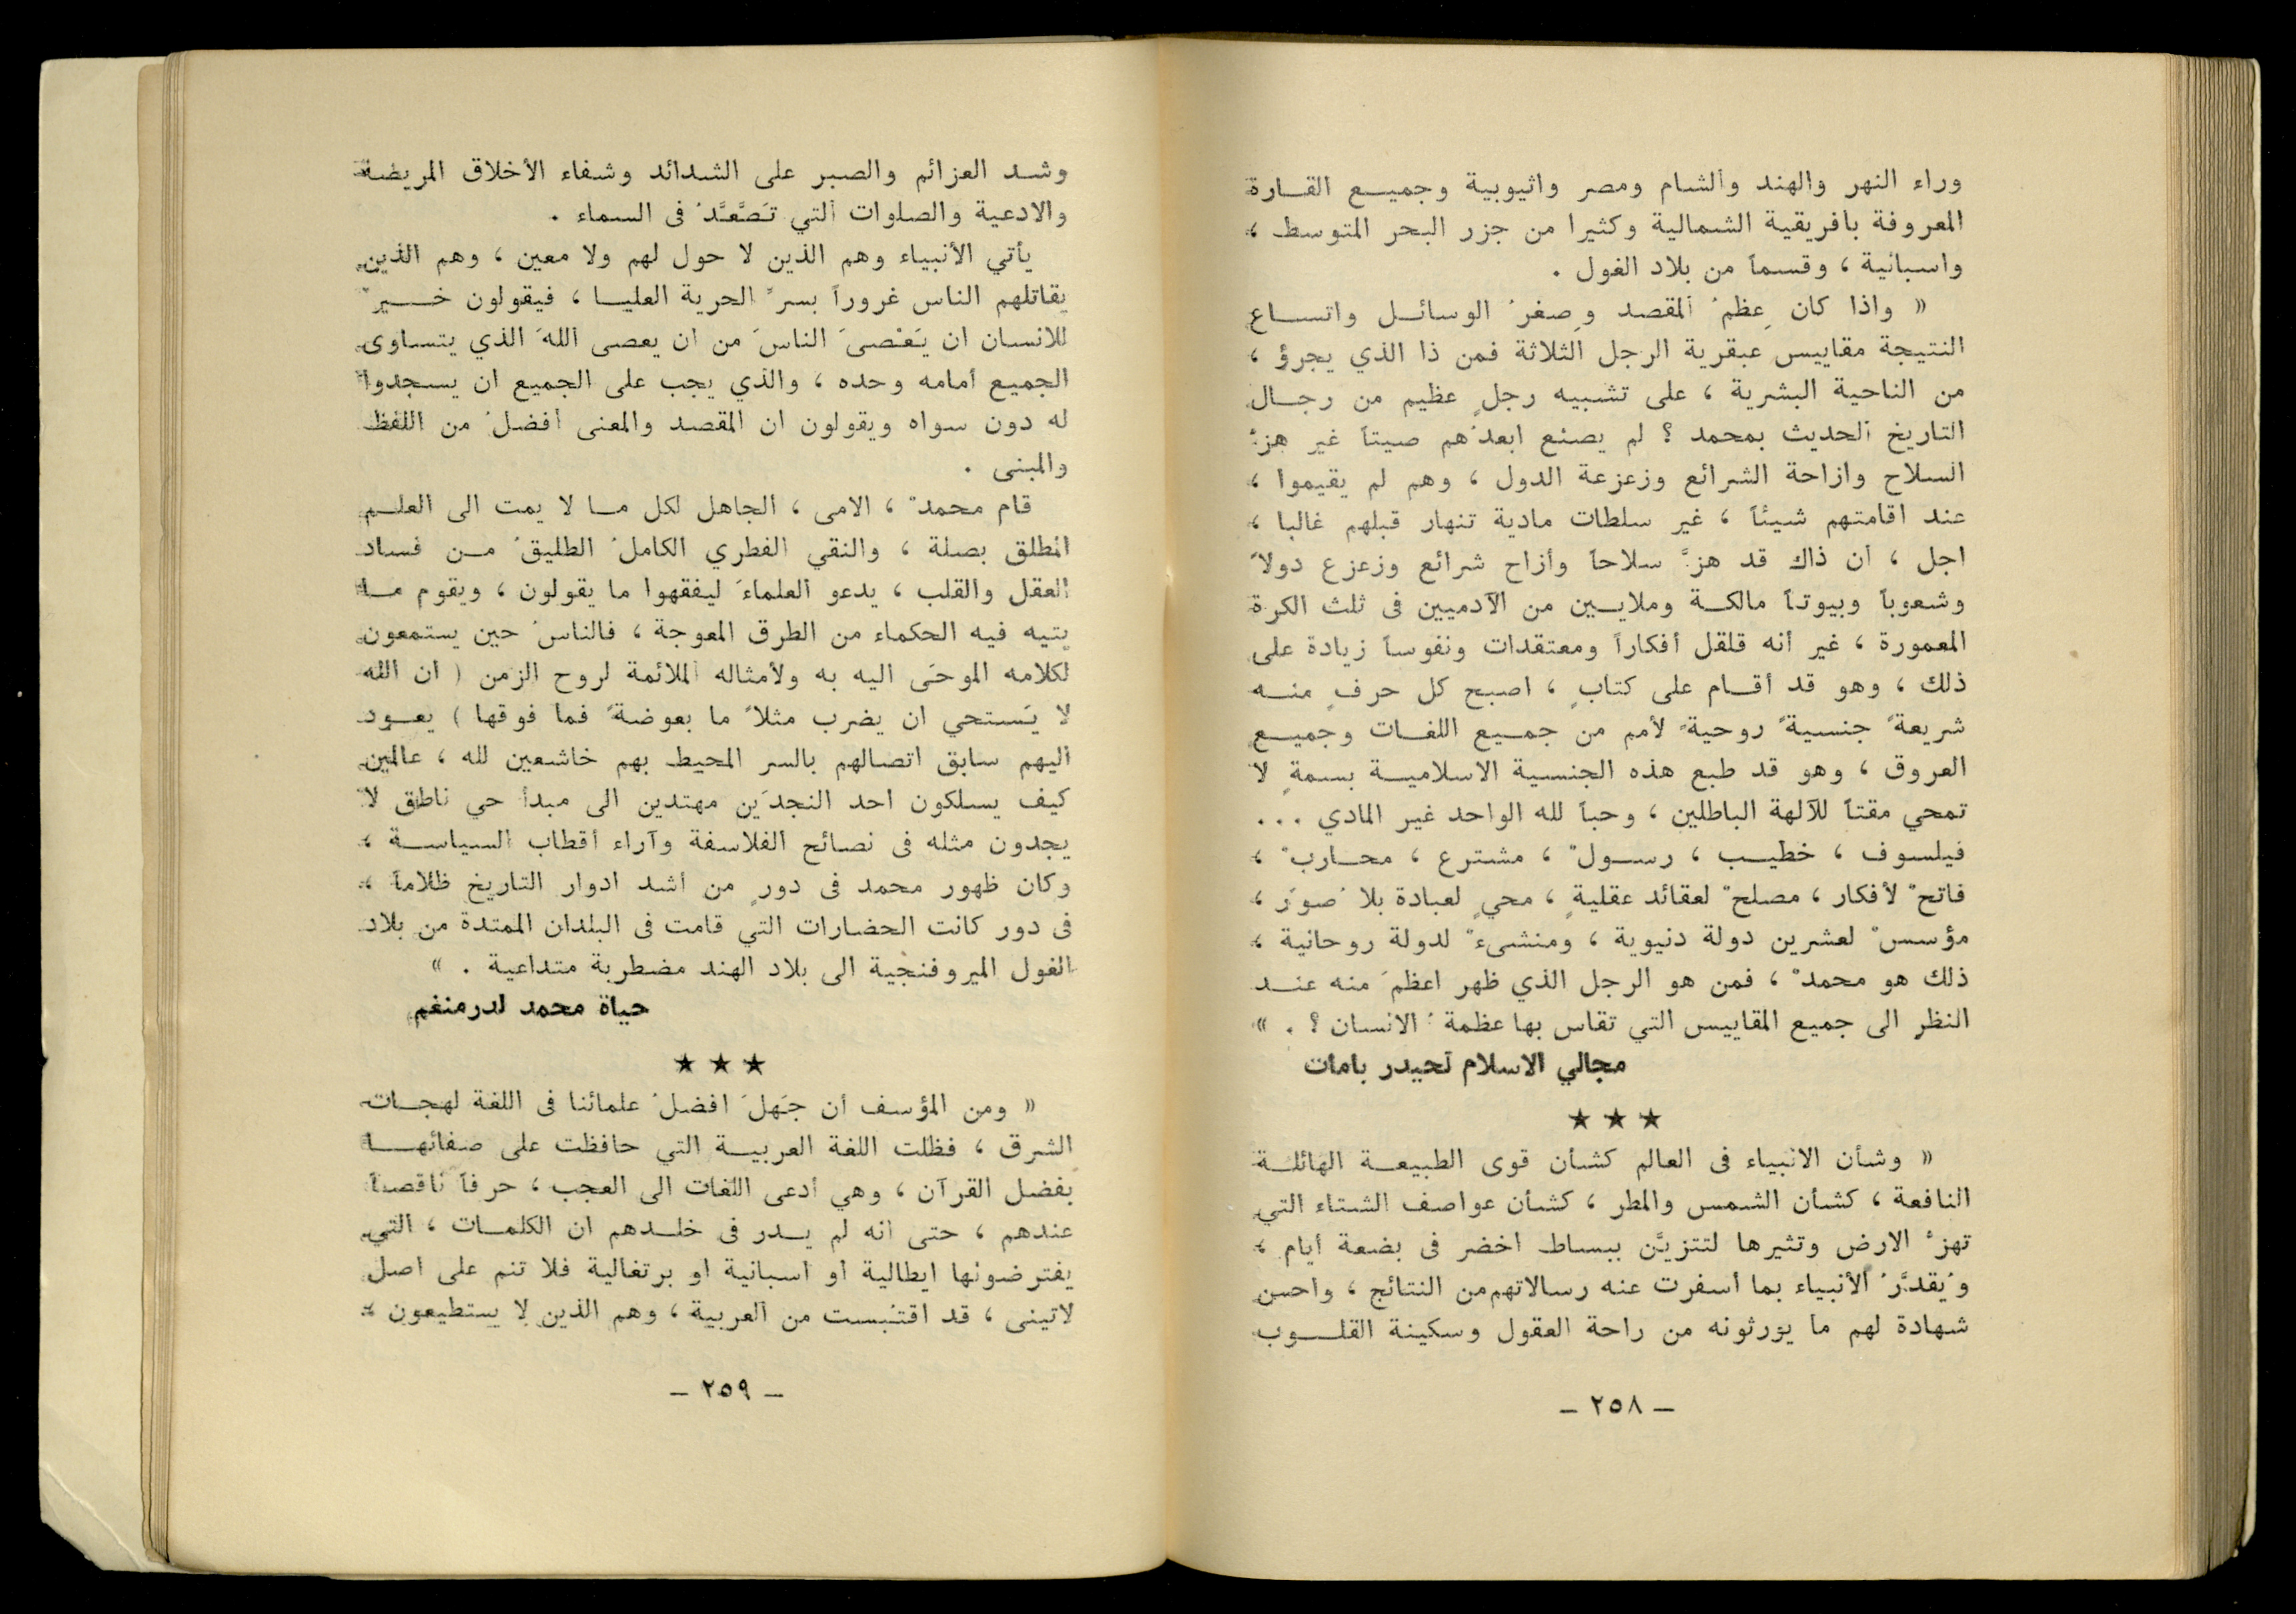 وراء النهر والهند والشام ومصر واثيوبية وجميع القارة
المعروفة بافريقية الشمالية وكثيرا من جزر البحر المتوسط ،
واسبانية ، وقسماً من بلاد الغول .
« واذا كان عِظمُ المقصد وصِغرُ الوسائل واتساع
النتيجة مقاييس عبقرية الرجل الثلاثة فمن ذا الذي يجرؤ ،
من الناحية البشرية ، على تشبيه رجلٍ عظيم من رجال
التاريخ الحديث بمحمد ؟ لم يصنع ابعدُهم صيتاً غير هزِّ
السلاح وازاحة الشرائع وزعزعة الدول ، وهم لم يقيموا ،
عند اقامتهم شيئاً ، غير سلطات مادية تنهار قبلهم غالبا ،
اجل ، ان ذاك قد هزَّ سلاحاً وأزاح شرائع وزعزع دولاً
وشعوباً وبيوتاً مالكة وملايين من الآدميين فى ثلث الكرة
المعمورة ، غير أنه قلقل أفكاراً ومعتقدات ونفوساً زيادة على
ذلك ، وهو قد أقام على كتابٍ ، اصبح كل حرفٍ منه
شريعةً جنسيةً روحيةً لأمم من جميع اللغات وجميع
العروق ، وهو قد طبع هذه الجنسية الاسلامية بسمةٍ لا
تمحي مقتاً للآلهة الباطلين ، وحباً لله الواحد غير المادي ...
فيلسوف ، خطيب ، رسولٌ ، مشترع ، محاربٌ ،
فاتحٌ لأفكار ، مصلحٌ لعقائد عقليةٍ ، محيٍ لعبادة بلا صُوَر ،
مؤسسٌ لعشرين دولة دنيوية ، ومنشىءٌ لدولة روحانية ،
ذلك هو محمدٌ ، فمن هو الرجل الذي ظهر اعظمَ منه عند
النظر الى جميع المقاييس التي تقاس بها عظمةُ الانسان ؟ . »
مجالي الاسلام لحيدر بامات
★ ★ ★
« وشأن الانبياء فى العالم كشأن قوى الطبيعة الهائلة
النافعة ، كشأن الشمس والمطر ، كشأن عواصف الشتاء التي
تهزُّ الارض وتثيرها لتتزيَّن ببساط اخضر فى بضعة أيام ،
ويُقدَّرُ الأنبياء بما أسفرت عنه رسالاتهم من النتائج ، واحسن
شهادة لهم ما يورثونه من راحة العقول وسكينة القلوب
– ٢٥٨ –
وشد العزائم والصبر على الشدائد وشفاء الأخلاق المريضة
والادعية والصلوات التي تَصَّعَّدُ فى السماء .
يأتي الأنبياء وهم الذين لا حول لهم ولا معين ، وهم الذين
يقاتلهم الناس غروراً بسرِّ الحرية العليا ، فيقولون خيرٌ
للانسان ان يَعْصىَ الناسَ من ان يعصى اللهَ الذي يتساوى
الجميع أمامه وحده ، والذي يجب على الجميع ان يسجدوا
له دون سواه ويقولون ان المقصد والمعنى أفضلُ من اللفظ
والمبنى .
قام محمدٌ ، الامى ، الجاهل لكل ما لا يمت الى العلم
المطلق بصلة ، والنقي الفطري الكاملُ الطليقُ من فساد
العقل والقلب ، يدعو العلماءَ ليفقهوا ما يقولون ، ويقوم ما
يتيه فيه الحكماء من الطرق المعوجة ، فالناسُ حين يستمعون
لكلامه الموحَى اليه به ولأمثاله الملائمة لروح الزمن ( ان الله
لا يَستحي ان يضرب مثلاً ما بعوضةً فما فوقها ) يعود
اليهم سابق اتصالهم بالسر المحيط بهم خاشعين لله ، عالمين
كيف يسلكون احد النجدَين مهتدين الى مبدأ حي ناطق لا
يجدون مثله فى نصائح الفلاسفة وآراء أقطاب السياسة ،
وكان ظهور محمد فى دورٍ من أشد ادوار التاريخ ظلاماً ،
فى دور كانت الحضارات التي قامت فى البلدان الممتدة من بلاد
الغول الميروفنجية الى بلاد الهند مضطربة متداعية . »
حياة محمد لدرمنغم
★ ★ ★
« ومن المؤسف أن جَهلَ افضلُ علمائنا فى اللغة لهجات
الشرق ، فظلت اللغة العربية التي حافظت على صفائها
بفضل القرآن ، وهي أدعى اللغات الى العجب ، حرفاً ناقصاً
عندهم ، حتى انه لم يدر فى خلدهم ان الكلمات ، التي
يفترضونها ايطالية أو اسبانية او برتغالية فلا تنم على اصل
لاتينى ، قد اقتُبست من العربية ، وهم الذين لا يستطيعون ،
– ٢٥٩ –